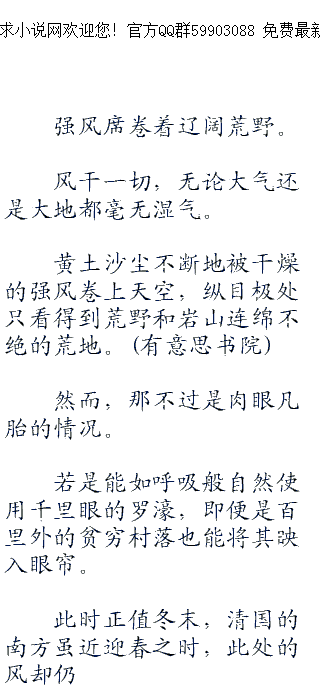 求小说网欢迎您！官方QQ群59903088 免费最新
强风席卷着辽阔荒野。
风干一切，无论大气还
是大地都毫无湿气。
黄土沙尘不断地被干燥
的强风卷上天空，纵目极处
只看得到荒野和岩山连绵不
绝的荒地。(有意思书院)
然而，那不过是肉眼凡
胎的情况。
若是能如呼吸般自然使
用千里眼的罗濠，即便是百
里外的贫穷村落也能将其映
入眼帘。
此时正值冬末，清国的
南方虽近迎春之时，此处的
风却仍